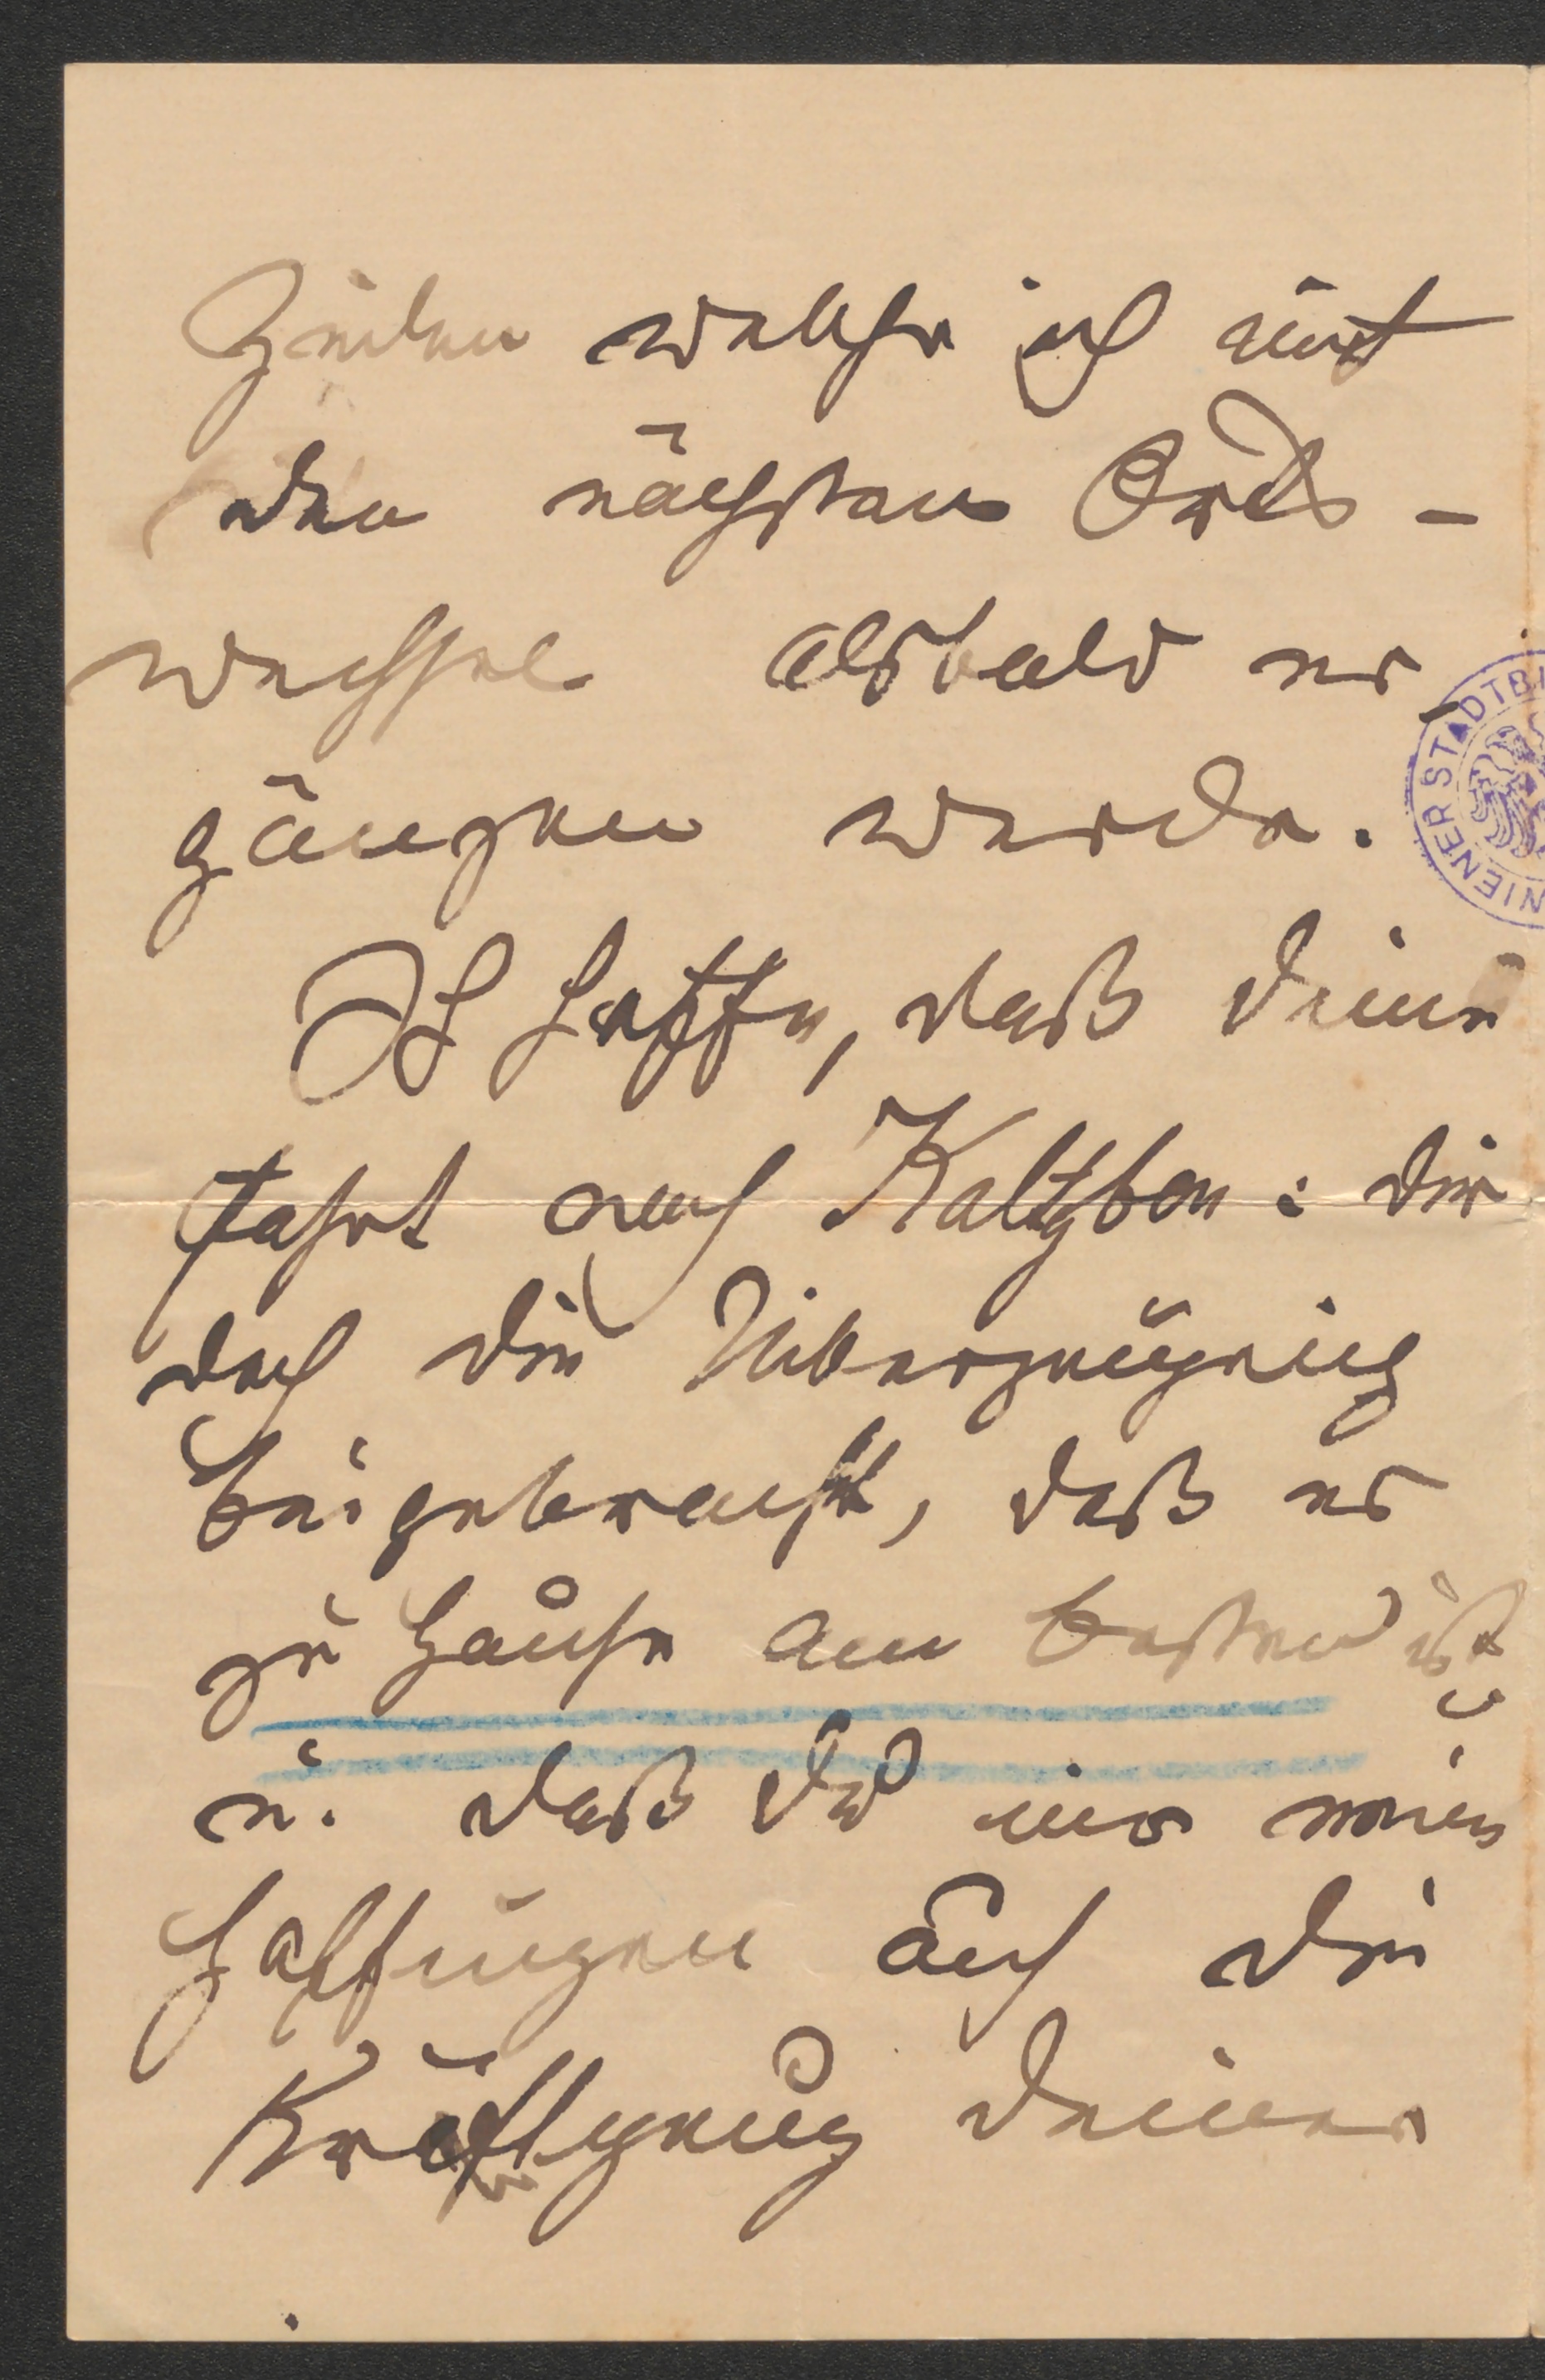 Zeilen welche ich mit
den nächsten Orts-
wechsel alsbald er-
gänzen werde.
Ich hoffe, daß Deine
Fahrt nach Kaltb : Dir
doch die Überzeugung
beigebracht, daß es
zu Hause am besten ist
u. daß Du mir meine
Hoffnungen auf die
Kräftigung Deiner
WIENER STADTBI